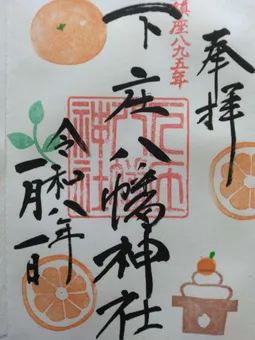 奉拝
鎮座八九五年
下庄八幡神社
令和八年
一月一日